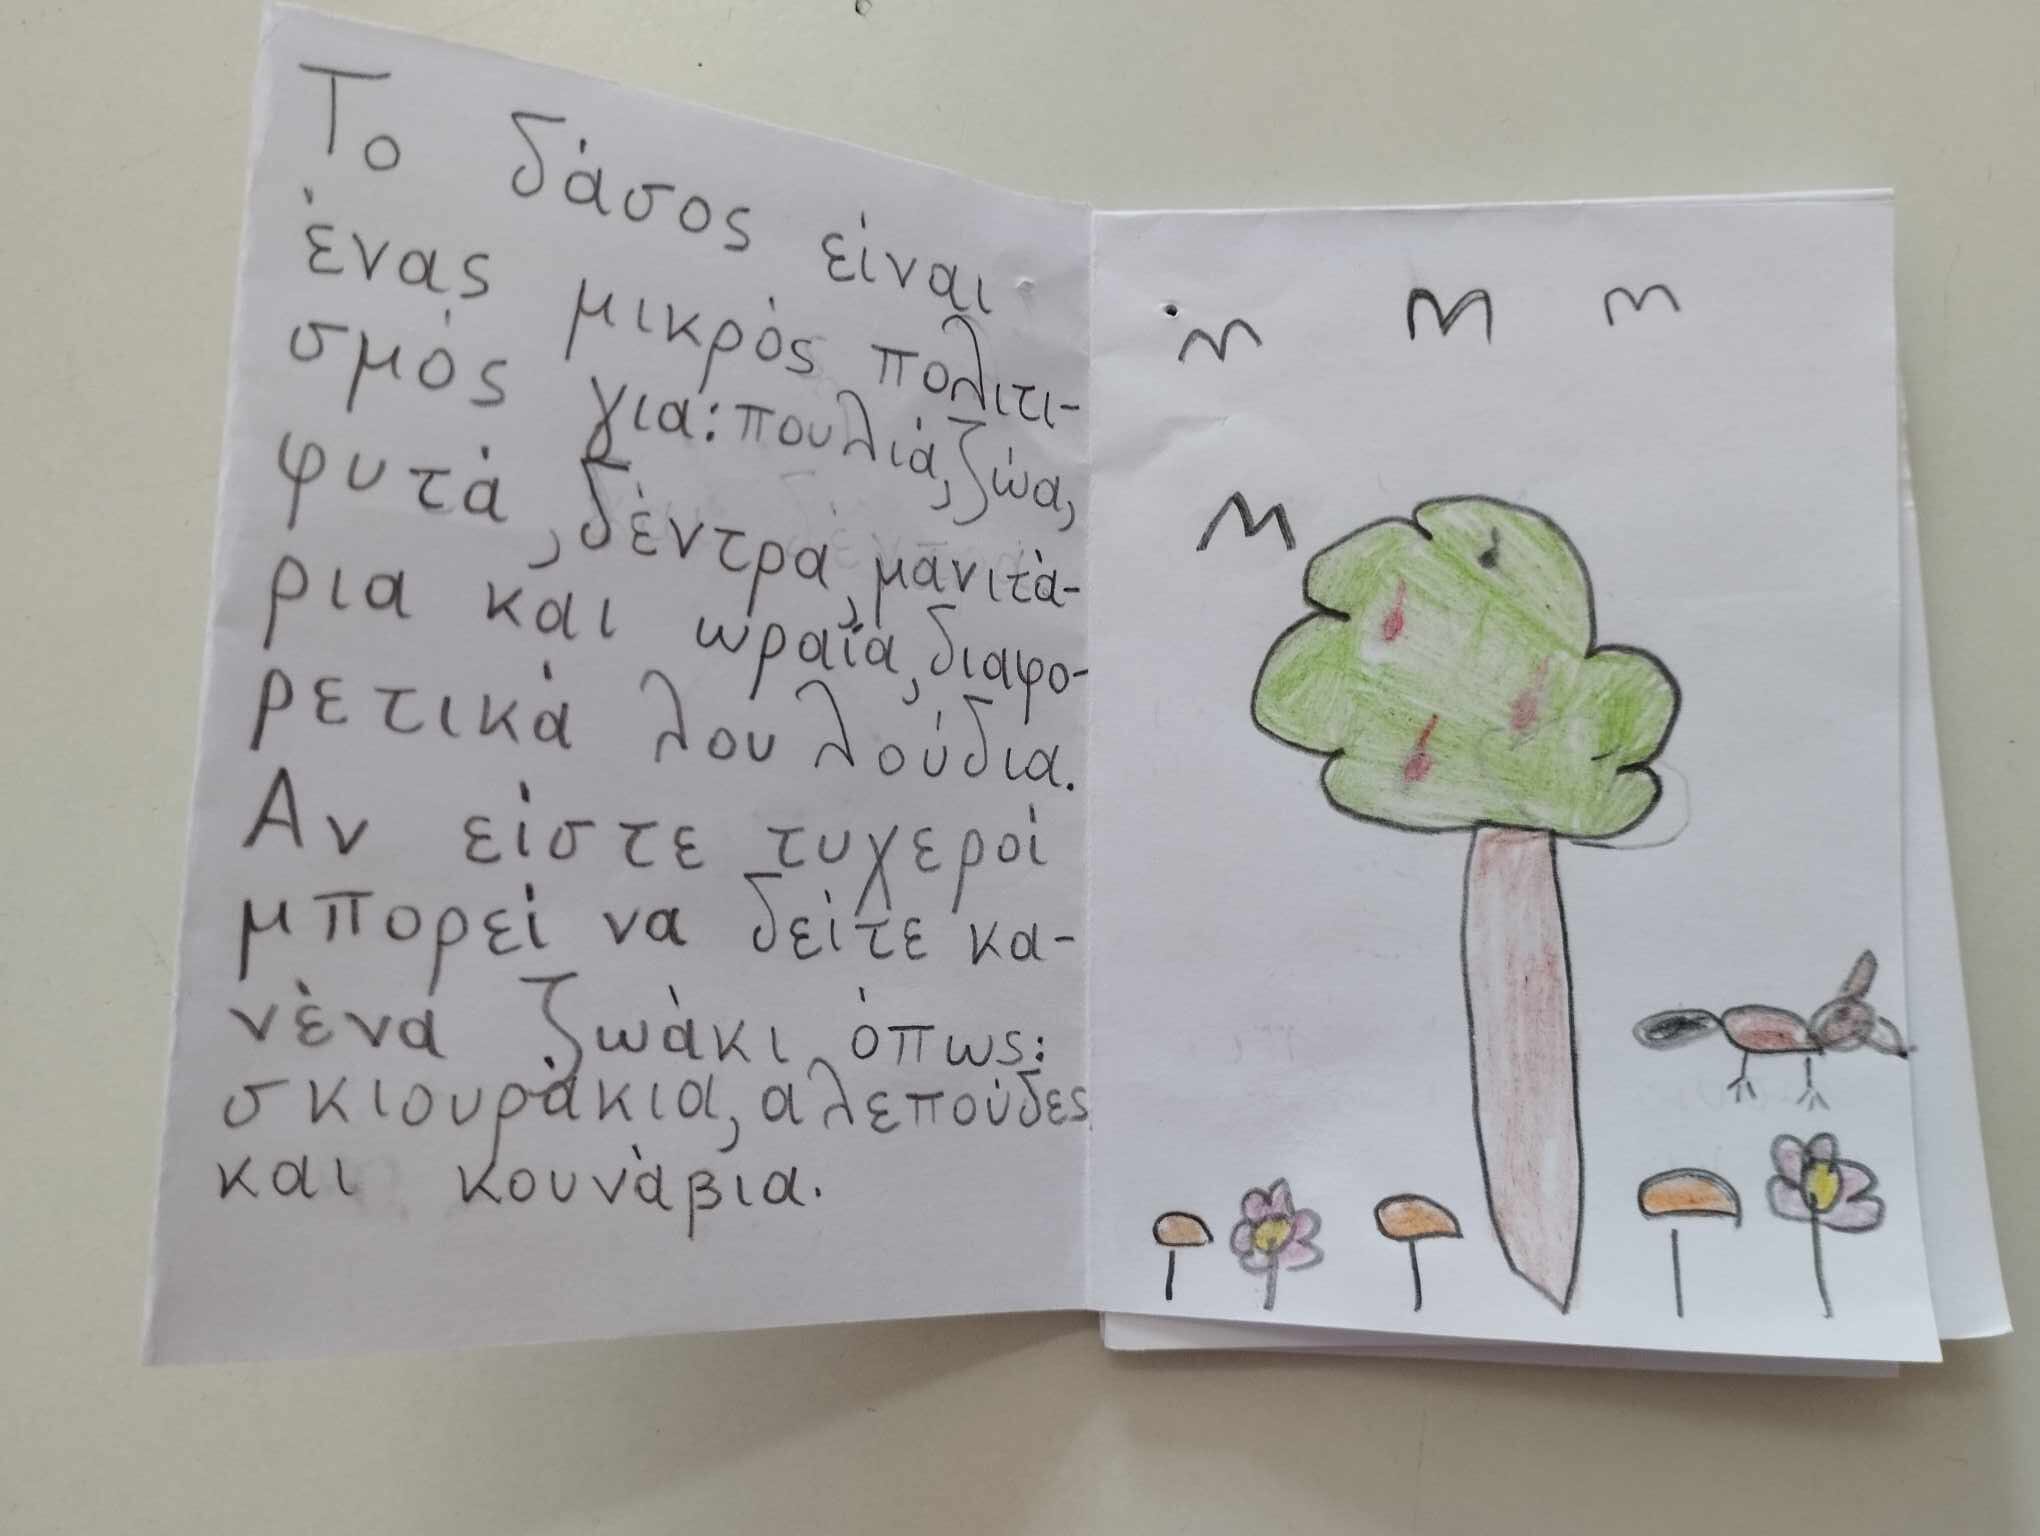 Το δάσος είναι
ένας μικρός πολιτι-
σμός για: πουλιά, ζώα,
φυτά, δέντρα, μανιτά-
ρια και ωραία, διαφο-
ρετικά λουλούδια.
Αν είστε τυχεροί
μπορεί να δείτε κα-
νένα ζωάκι όπως:
σκιουράκια, αλεπούδες
και κουνάβια.